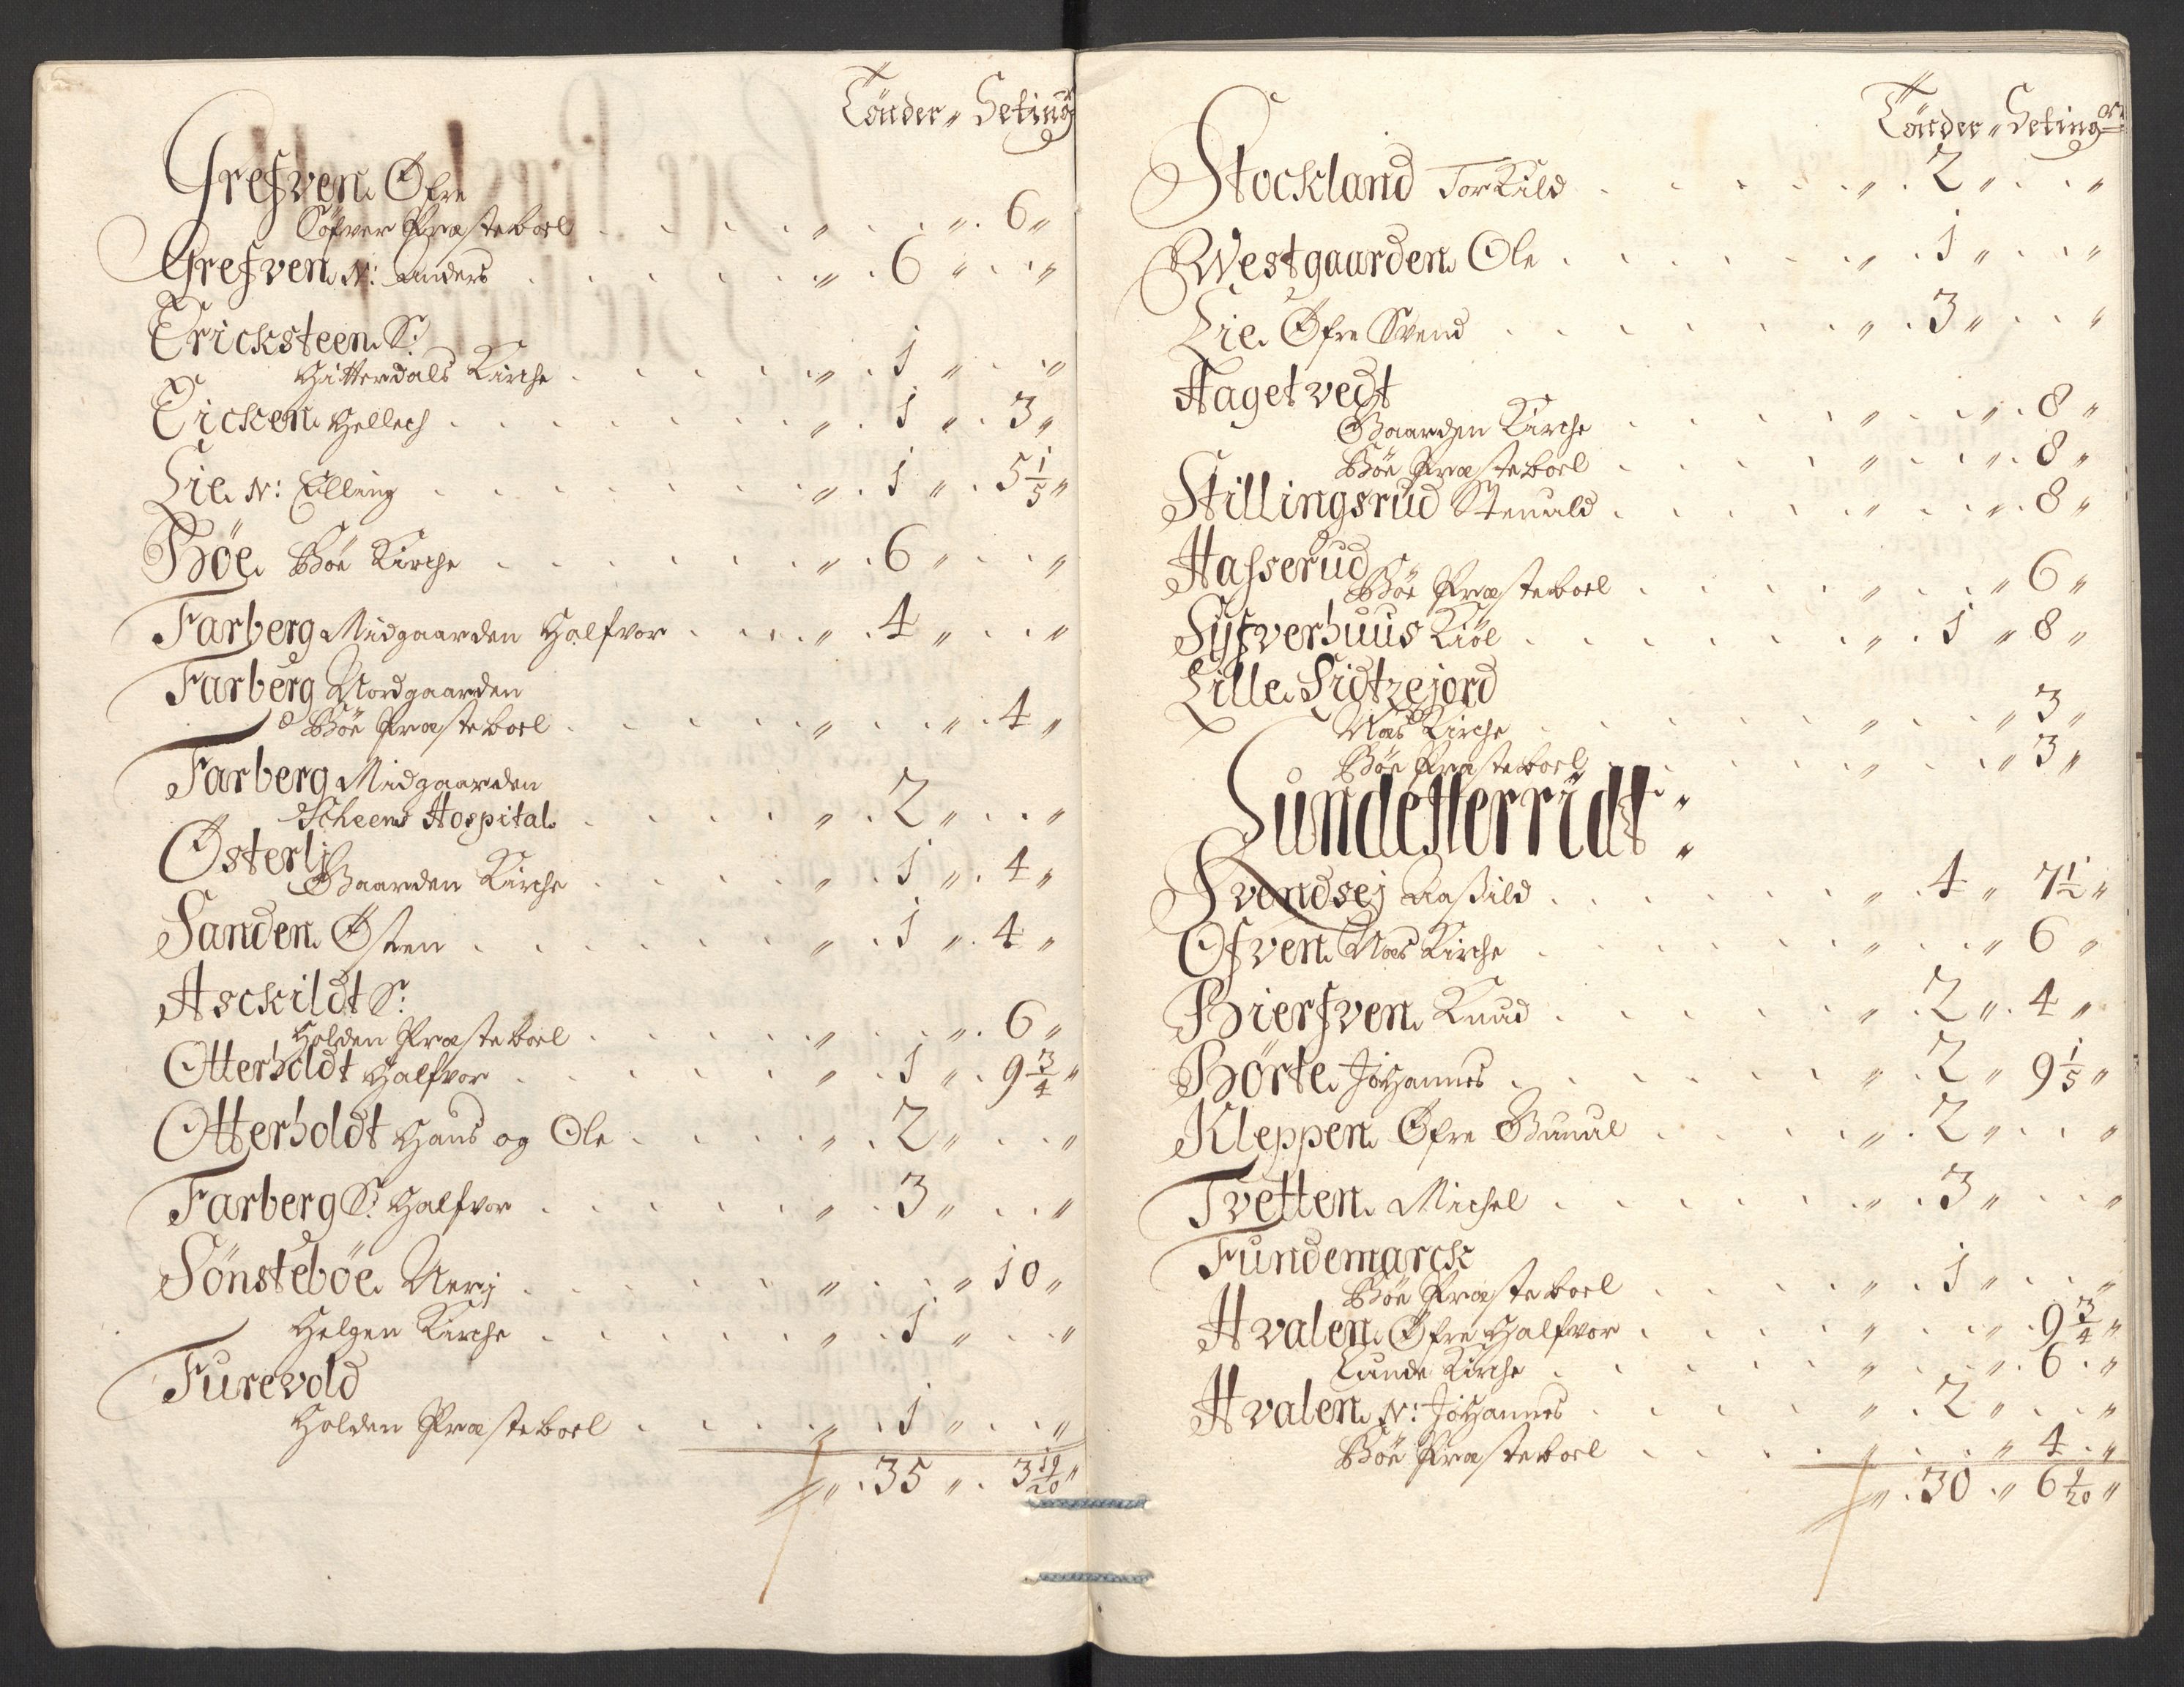 Tönder " Seting
Grefven Øfre
Præsteboel . . . " . . " . 6 "
Grefven N: Anders . . . " . 6 " . . "
Ericksteen S:
Hitterdals Kirche . . . " . 1 " . . "
Eicken Hellech . . . " . 1 " . 3 "
Lie N: Elling . . . " . 1 " . 5 1/5 "
Böe Böe Kirche . . . " . 6 " . . "
Farberg Midgaarden Halfvor . . . " . 4 " . . "
Farberg Nordgaarden
Böe Præsteboel . . . " . . " . 4 "
Farberg Midgaarden
Scheens Hospital . . . " . 2 " . . "
Österlj
Gaarden Kirche . . . " . 1 " . 4 "
Sanden Østen . . . " . 1 " . 4 "
Asckildt S:
Holden Præsteboel . . . " . . " . 6 "
Otterholdt Halfvor . . . " . 1 " . 9 3/4 "
Otterholdt Hans og Ole . . . " . 2 " . . "
Farberg S: Halfvor . . . " . 3 " . . "
Sönsteböe Nerj . . . " . . " 10 "
Helgen Kirche . . . " . 1 " . . "
Furevold
Holden Præsteboel . . . " . 1 " . . "
" . 35 " . 3 19/20 "
Tönder " Setingr
Stockland Torkild . . . " . 2 " . . "
Westgaarden Ole . . . " . 1 " . . "
Lie Øfre Svend . . . " . 3 " . . "
Hagetvedt
Gaarden Kirche . . . " . . " . 8 "
Böe Præsteboel . . . " . . " . 8 "
Stillingsrud Stenuld . . . " . . " . 8 "
Hasserud
Böe Præsteboel . . . " . . " 6 "
Syfverhuus Kiöl . . . " . 1 " 8 "
Lille Sidtzejord
Næs Kirche . . . " . . " 3 "
Böe Præsteboel . . . " . . " 3 "
Lundetterridt :
Svendsej Aaßild . . . " . 4 " 7 1/2 "
Ofven Næs Kirche . . . " . . " 6 "
Bierfven Knud . . . " . 2 " . 4 "
Börte Johannes . . . " . 2 " 9 1/5 "
Kleppen Øfre Gunul . . . " . 2 " . . "
Tvetten Michel . . . " . 3 " . . "
Fundemarck
Böe Præsteboel . . . " . 1 " . . "
Hvalen Øfre Halfvor . . . " . . " . 9 3/4 "
Lunde Kirche . . . " . . " . 6 . "
Hvalen N: Johannes . . . " . 2 " . . "
Böe Præsteboel . . . " . . " 4 . "
" . 30 . " 6 9/20 "